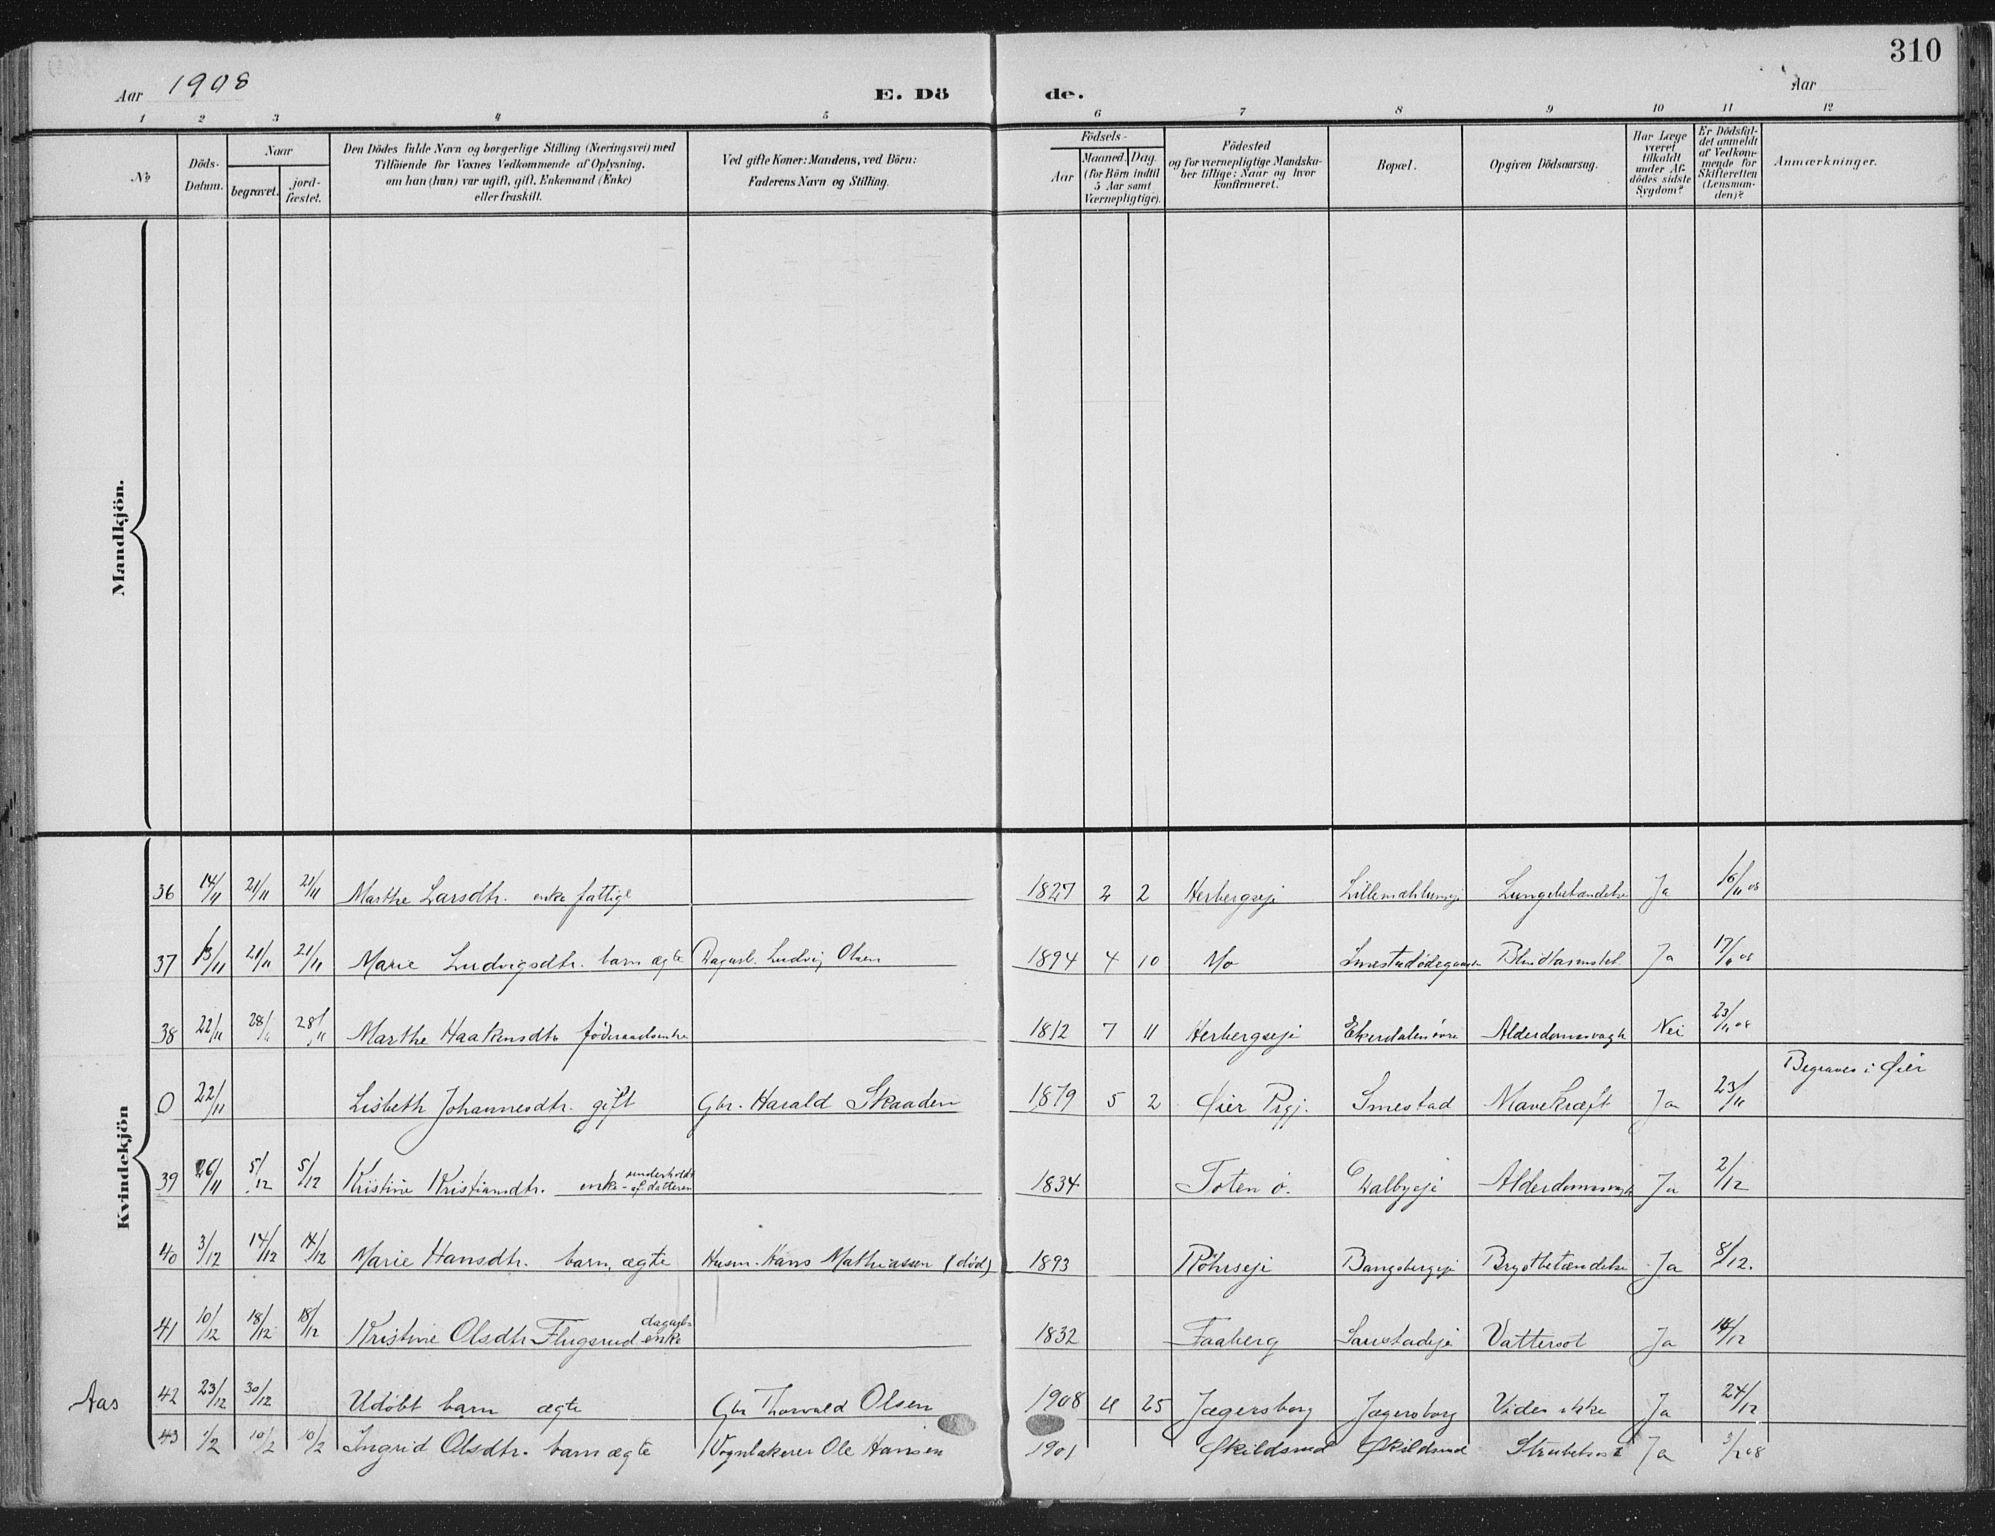 310
Aar 1908
E. Dö de.
Aar
1 2 3 4 5 6 7 8 9 10 11 12
No
Döds-Datum.
Naar
begravet.
jord-fæstet.
Den Dödes fulde Navn og borgerlige Stilling (Næringsvei) med
Tilföiende for Voxnes Vedkommende af Oplysning,
om han (hun) var ugift, gift, Enkemand (Enke)
eller fraskilt.
Ved gifte Koner: Mandens, ved Börn:
Faderens Navn og Stilling.
Födsels-
Aar
Maaned. (for Börn indtil 5 Aar samt Værnepligtige).
Dag.
Födested
og for værnepligtige Mandska-
ber tillige: Naar og hvor
konfirmeret.
Bopæl.
Opgiven Dödsaarsag.
Har Læge været tilkaldt under Af-dödes sidste Sygdom?
Er Dödsfal-det anmeldt af Vedkom-mende for Skifteretten (Lensman-den)?
Anmærkninger.
Mandkjön.
Kvindekjön
36 14/11 21/11 21/11 Marthe Larsdtr. enke fattig 1827 2 2 Herbergseje Lungebetændelse Ja 16/11 08
37 13/11 21/11 21/11 Marie Ludvigsdtr. barn ægte Dagarb. Ludvig Olsen 1894 4 10 Mo Ja 17/11 08
38 22/11 28/11 28/11 Marthe Haakensdtr föderaadsenke 1812 7 11 Herbergseje Ekerdalen övre Alderdomssvagh Nei 23/11 08
0 22/11 Lisbeth Johannesdtr. gift Gbr. Harald Skaaden 1879 5 2 Øier Prgj. Smestad Mavekræft Ja 23/11 Begraves i Øier
39 26/11 5/12 5/12 Kristine Kristiansdtr. enke - underholdt af datteren 1834 Toten ö. Dalbyeje Alderdomssvagh Ja 2/12
40 3/12 14/12 14/12 Marie Hansdtr. barn, ægte Husm. Hans Mathiassen (död) 1893 Röhrseje Bangsbergeje Brystbetændelse Ja 8/12.
41 10/12 18/12 18/12 Kristine Olsdtr Flugsrud dagarb- enke 1832 Faaberg Vattersot Ja 14/12
Aas 42 23/12 30/12 Udöbt barn ægte Gbr Thorvald Olsen 1908 11 25 Jægersborg Jægersborg Vides ikke Ja 24/12
43 1/2 10/2 10/2 Ingrid Olsdtr. barn ægte Vognlakerer Ole Hansen 1901 Øskildsrud Øskildsrud Ja 3/2 08